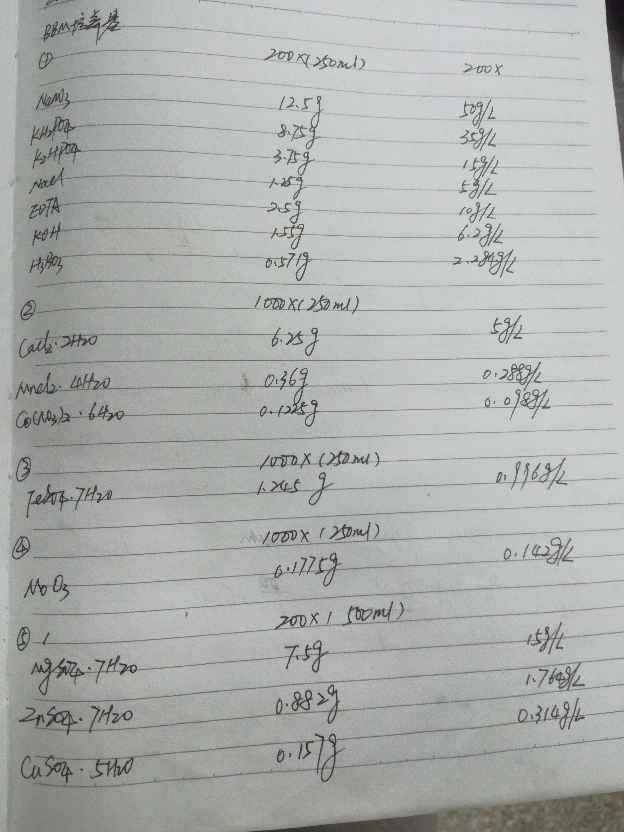 BBM培养基
① 200X(250ml) 200X
NaNO3 12.5g 50g/L
KH2PO4 8.75g 35g/L
K2HPO4 3.75g 15g/L
NaCl 1.25g 5g/L
EDTA 2.5g 10g/L
KOH 1.55g 6.2g/L
H3BO3 0.571g 2.284g/L
② 1000X(250ml)
CaCl2·2H2O 6.25g 5g/L
MnCl2·4H2O 0.36g 0.288g/L
Co(NO3)2·6H2O 0.1225g 0.098g/L
③ 1000X(250ml)
FeSO4·7H2O 1.245g 0.996g/L
④ 1000X(250ml)
MoO3 0.1775g 0.142g/L
⑤ 200X(500ml)
MgSO4·7H2O 7.5g 15g/L
ZnSO4·7H2O 0.882g 1.764g/L
CuSO4·5H2O 0.157g 0.314g/L